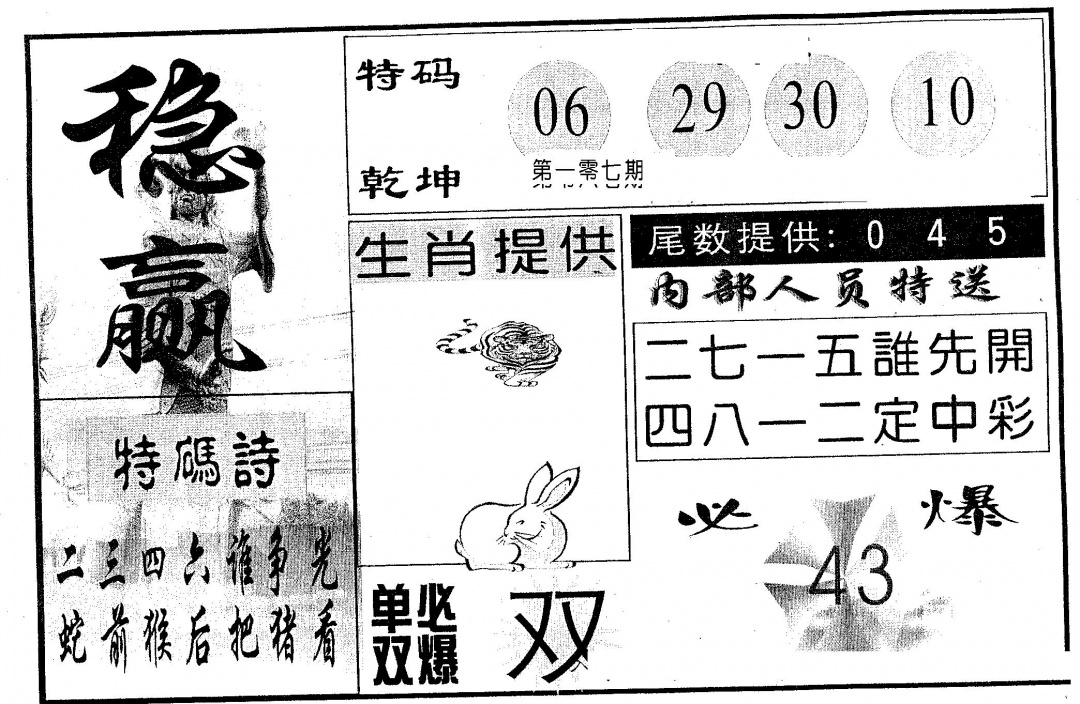 稳
赢
特码
06 29 30 10
乾坤
第一零七期
生肖提供
尾数提供: 0 4 5
内部人员特送
二七一五誰先開
四八一二定中彩
特碼詩
二三四六谁争光
蛇前猴后把猪看
必爆
43
单双
必爆
双